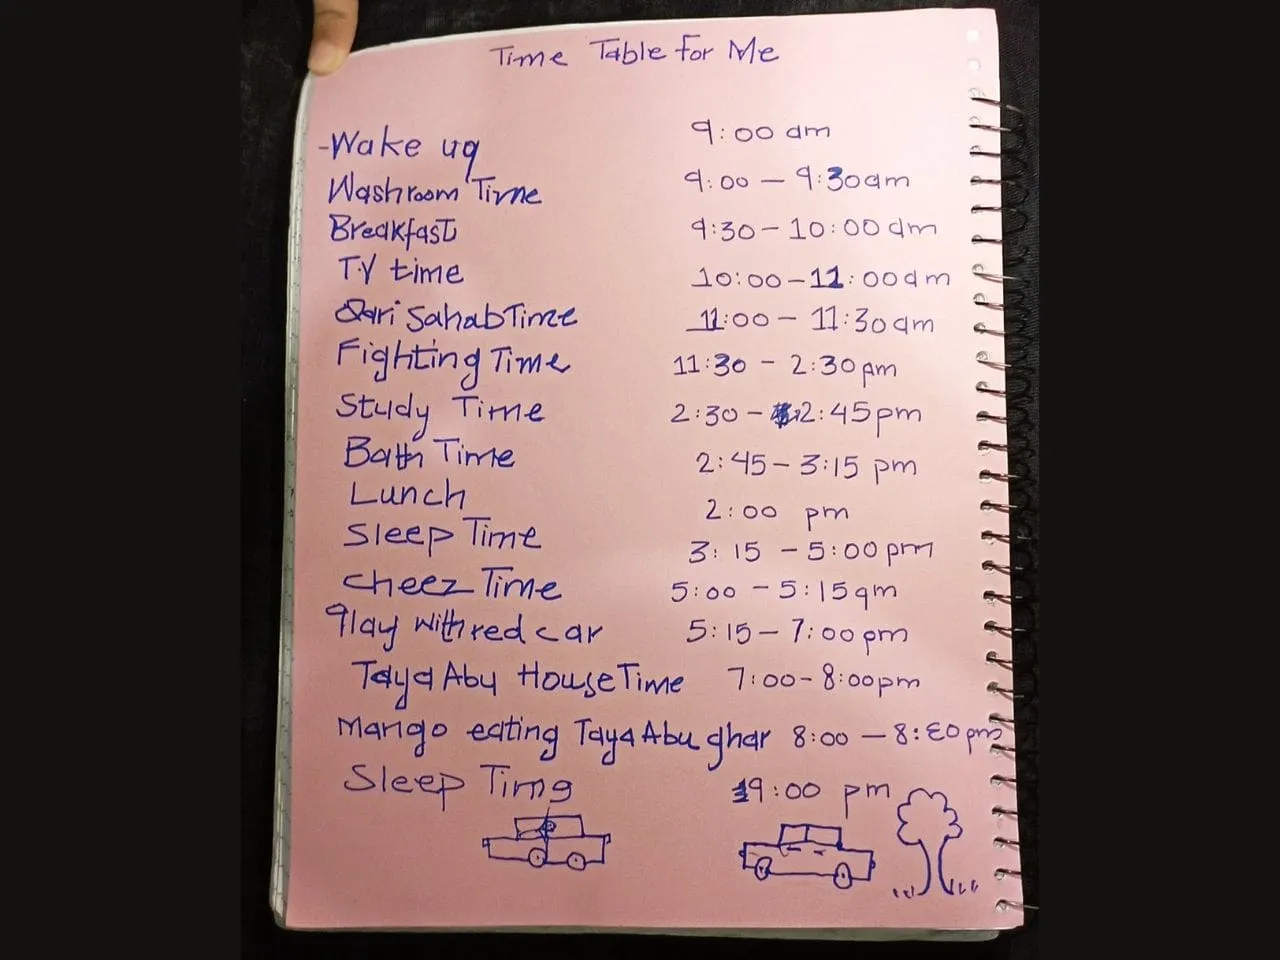 Time Table for Me
-Wake uq 9:00 am
Washroom Time 9:00 – 9:30am
Breakfast 9:30 – 10:00 am
T.V time 10:00 – 11:00am
Qari Sahab Time 11:00 – 11:30am
Fighting Time 11:30 – 2:30pm
Study Time 2:30 – 2:45pm
Bath Time 2:45 – 3:15 pm
Lunch 2:00 pm
Sleep Time 3:15 – 5:00pm
Cheez Time 5:00 – 5:15qm
qlay with red car 5:15 – 7:00pm
Taya Abu House Time 7:00 – 8:00pm
Mango eating Taya Abu ghar 8:00 – 8:30pm
Sleep Timg 9:00 pm